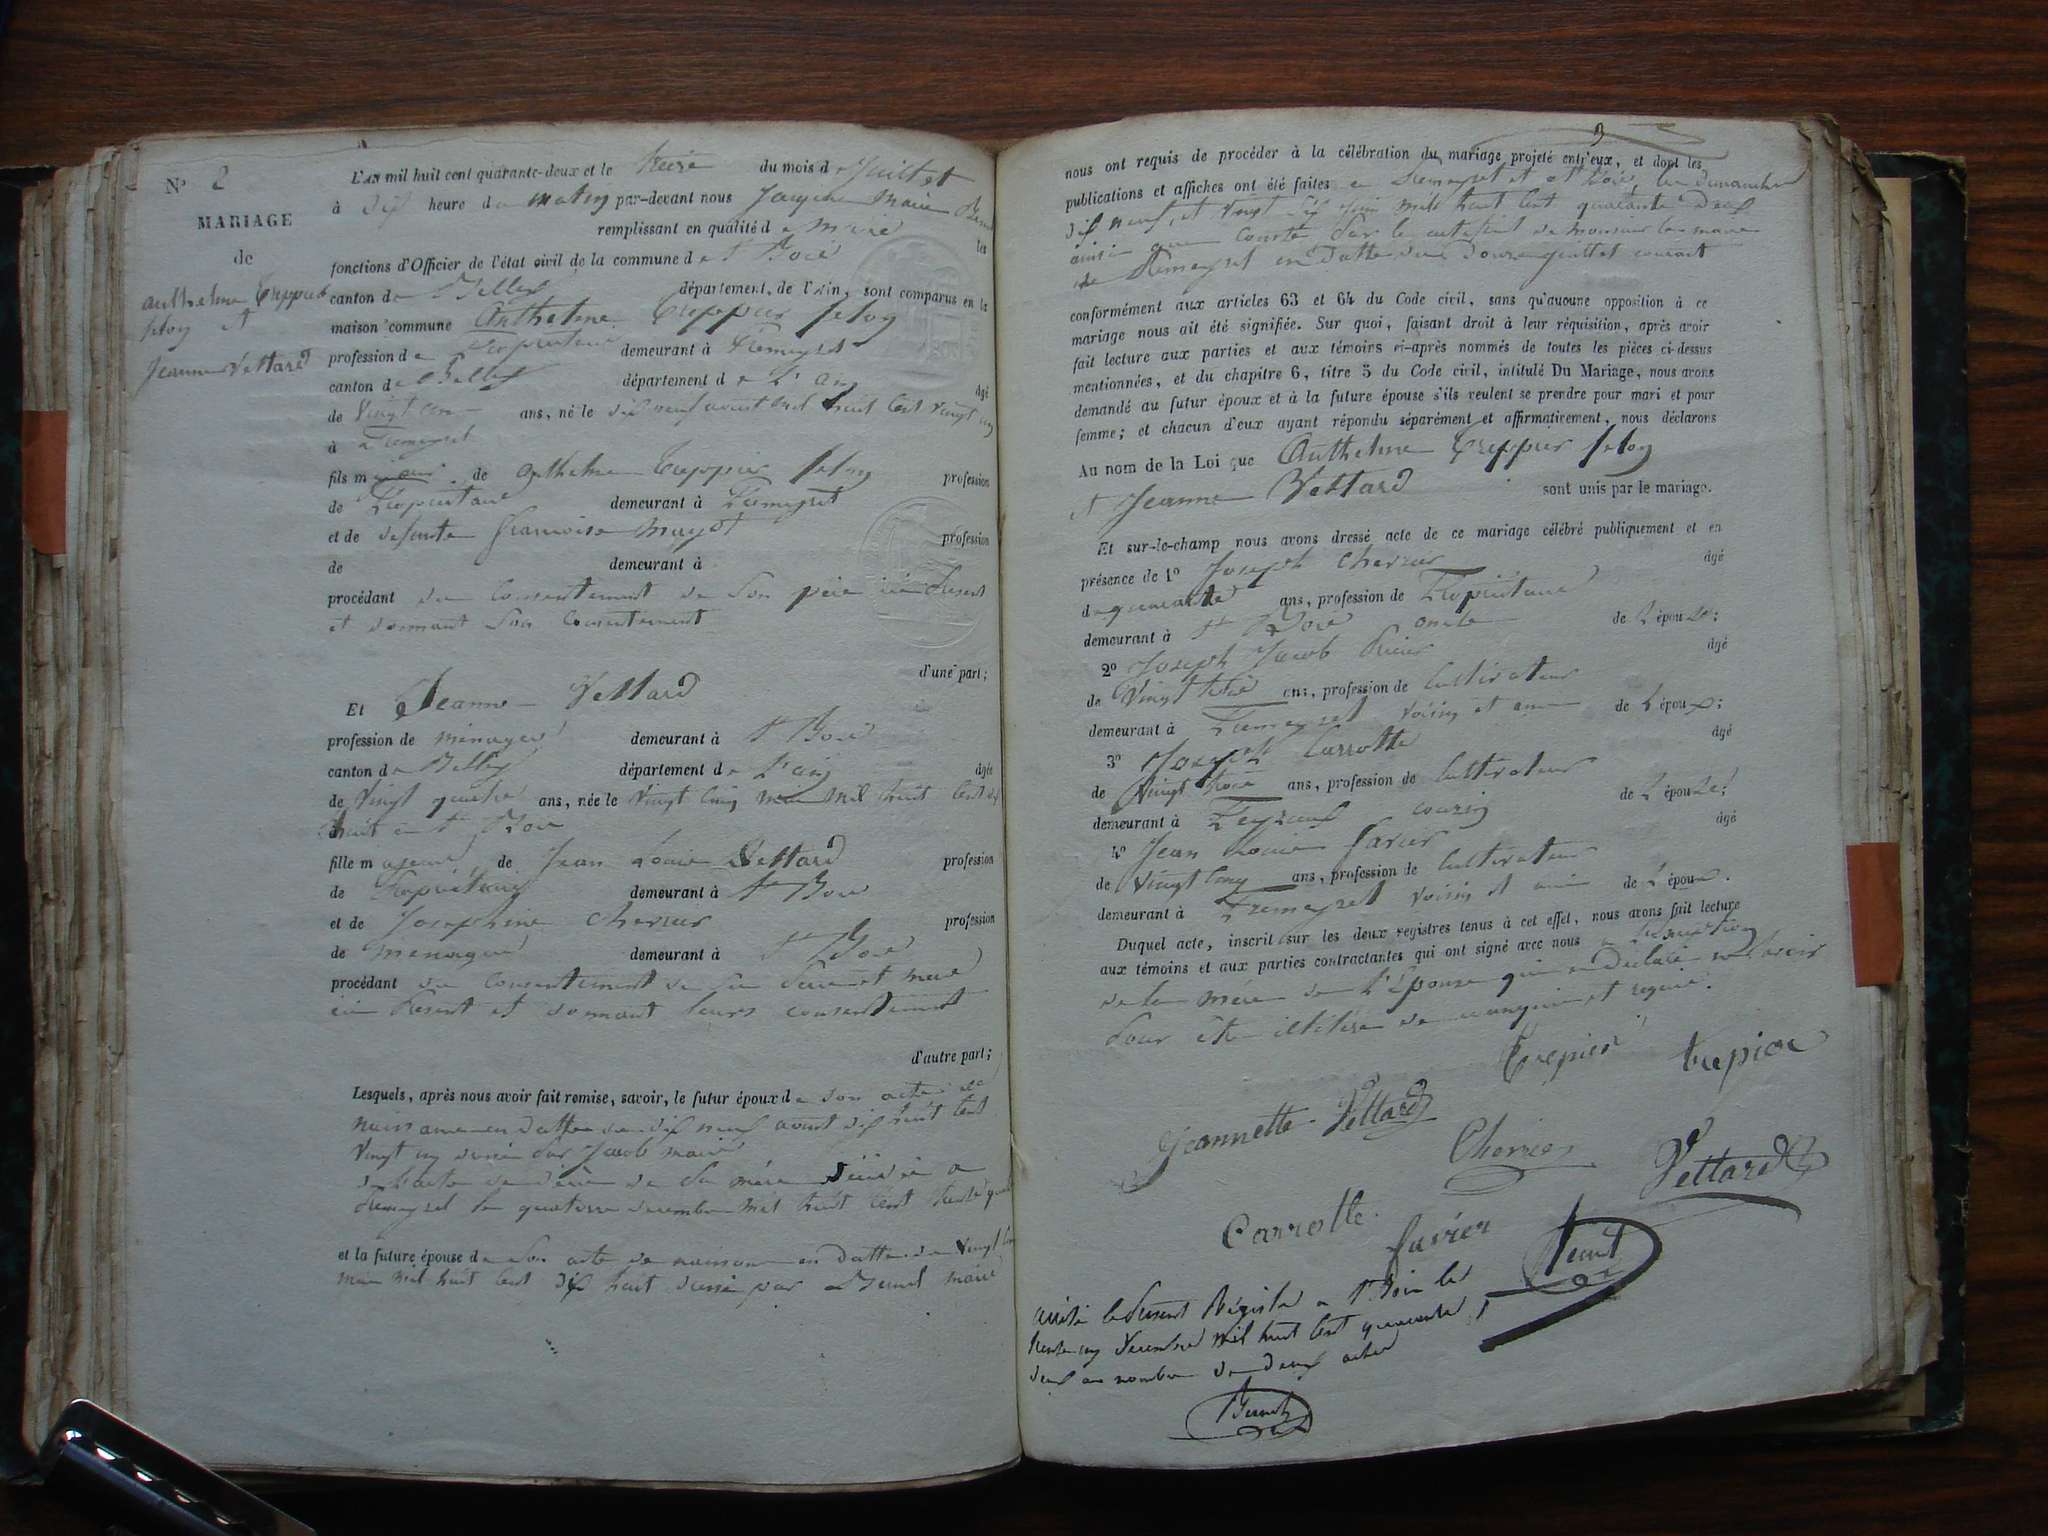 N° 2
MARIAGE
de
anthelme Treppier
feloy et
Jeanne Vettard
L'AN mil huit cent quarante-deux et le treize du mois de Juillet
à dix heure du matin par-devant nous Jacques Marie
remplissant en qualité de maire les
fonctions d'Officier de l'état civil de la commune de St Boié
canton de Belley département de l'Ain, sont comparus en la
maison commune Anthelme Treppier feloy
profession de Propriétaire demeurant à
canton de Belley département de L'ain âgé
de Vingt un ans, né le dix neuf aoust mil huit Cent vingt un
à
fils mineur de anthelme Treppier feloy profession
de Propriétaire demeurant à
et de défunte françoise profession
de demeurant à
procédant du Consentement de son père ici présent
et donnant son Consentement
d'une part;
Et Jeanne Vettard
profession de ménagère demeurant à St Boié
canton de Belley département de L'ain âgée
de Vingt quatre ans, née le Vingt cinq mai mil huit Cent dix
huit à St Boié
fille majeure de Jean Louis Vettard profession
de Propriétaire demeurant à St Boié
et de Josephine Chervier profession
de ménagère demeurant à St Boié
procédant du Consentement de ses père et mère
ici Présent et donnant leurs consentement
d'autre part;
Lesquels, après nous avoir fait remise, savoir, le futur époux de son acte de
naissance en datte du dix neuf aoust dix huit cent
Vingt un dressé par Jacob maire
de l'acte de décès de sa mère décédée a
le quatorze décembre mil huit cent trente
et la future épouse de son acte de naissance en datte du Vingt cinq
mai mil huit cent dix huit dressé par maire
3
nous ont requis de procéder à la célébration du mariage projeté entr'eux, et dont les
publications et affiches ont été faites a et St Boié les dimanches
dix neuf, et vingt six juin mil huit cent quarante deux
ainsi que conste par le certificat de monsieur le maire
de en datte du douze juillet courant
conformément aux articles 63 et 64 du Code civil, sans qu'aucune opposition à ce
mariage nous ait été signifiée. Sur quoi, faisant droit à leur réquisition, après avoir
fait lecture aux parties et aux témoins ci-après nommés de toutes les pièces ci-dessus
mentionnées, et du chapitre 6, titre 5 du Code civil, intitulé Du Mariage, nous avons
demandé au futur époux et à la future épouse s'ils veulent se prendre pour mari et pour
femme; et chacun d'eux ayant répondu séparément et affirmativement, nous déclarons
Au nom de la Loi que Anthelme Treppier feloy
et Jeanne Vettard sont unis par le mariage.
Et sur-le-champ nous avons dressé acte de ce mariage célébré publiquement et en
présence de 1° Joseph Chervier âgé
de quarante ans, profession de Propriétaire
demeurant à St Boié oncle de L'épouse;
2° Joseph Jacob âgé
de Vingt trois ans, profession de Cultivateur
demeurant à voisin et ami de L'époux;
3° Joseph Carrotte âgé
de Vingt trois ans, profession de Cultivateur
demeurant à cousin de L'épouse;
4° Jean Louis Favier âgé
de Vingt cinq ans, profession de Cultivateur
demeurant à voisin et ami de L'époux.
Duquel acte, inscrit sur les deux registres tenus à cet effet, nous avons fait lecture
aux témoins et aux parties contractantes qui ont signé avec nous a L'exception
de la mère de L'épouse qui a déclaré ne savoir
pour être illitérée de ce enquise et requise.
Trepier trepier
Jeannette Vettard
Chervier
Vettard
Carrotte
Favier
arrêté le présent Régistre a St Boié le
trente un décembre mil huit cent quarante
deux au nombre de deux actes